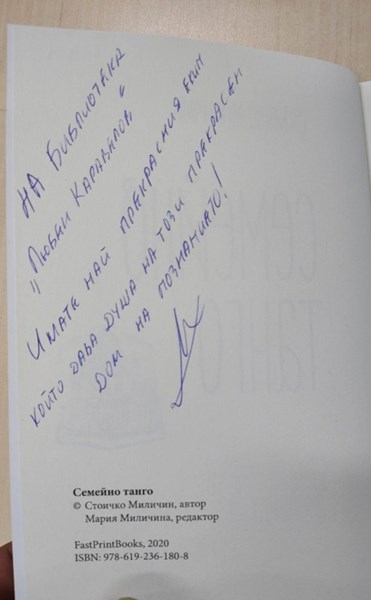 НА БИБЛИОТЕКА
"ЛЮБЕН КАРАВЕЛОВ"
ИМАТЕ НАЙ ПРЕКРАСНИЯ ЕКИП
КОЙТО ДАВА ДУША НА ТОЗИ ПРЕКРАСЕН
ДОМ НА ПОЗНАНИЕТО!
Семейно танго
© Стоичко Миличин, автор
Мария Миличина, редактор
FastPrintBooks, 2020
ISBN: 978-619-236-180-8